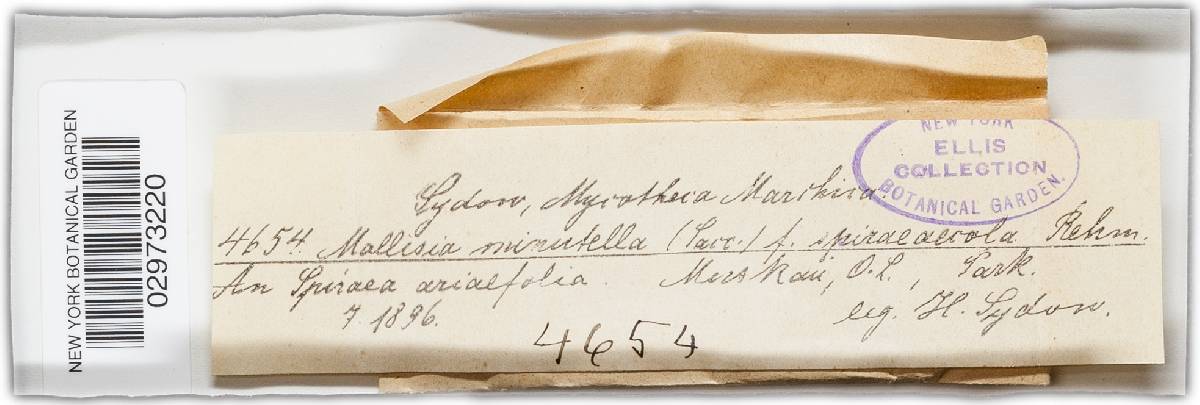 NEW YORK BOTANICAL GARDEN
02973220
NEW YORK
ELLIS
COLLECTION
BOTANICAL GARDEN.
Sydow, Mycotheca Marchica.
4654. Mollisia minutella (Sacc.) f. spiraeaecola Rehm.
An Spiraea ariaefolia. Muskau, O.L., Park.
7. 1896. leg. H. Sydow.
4654